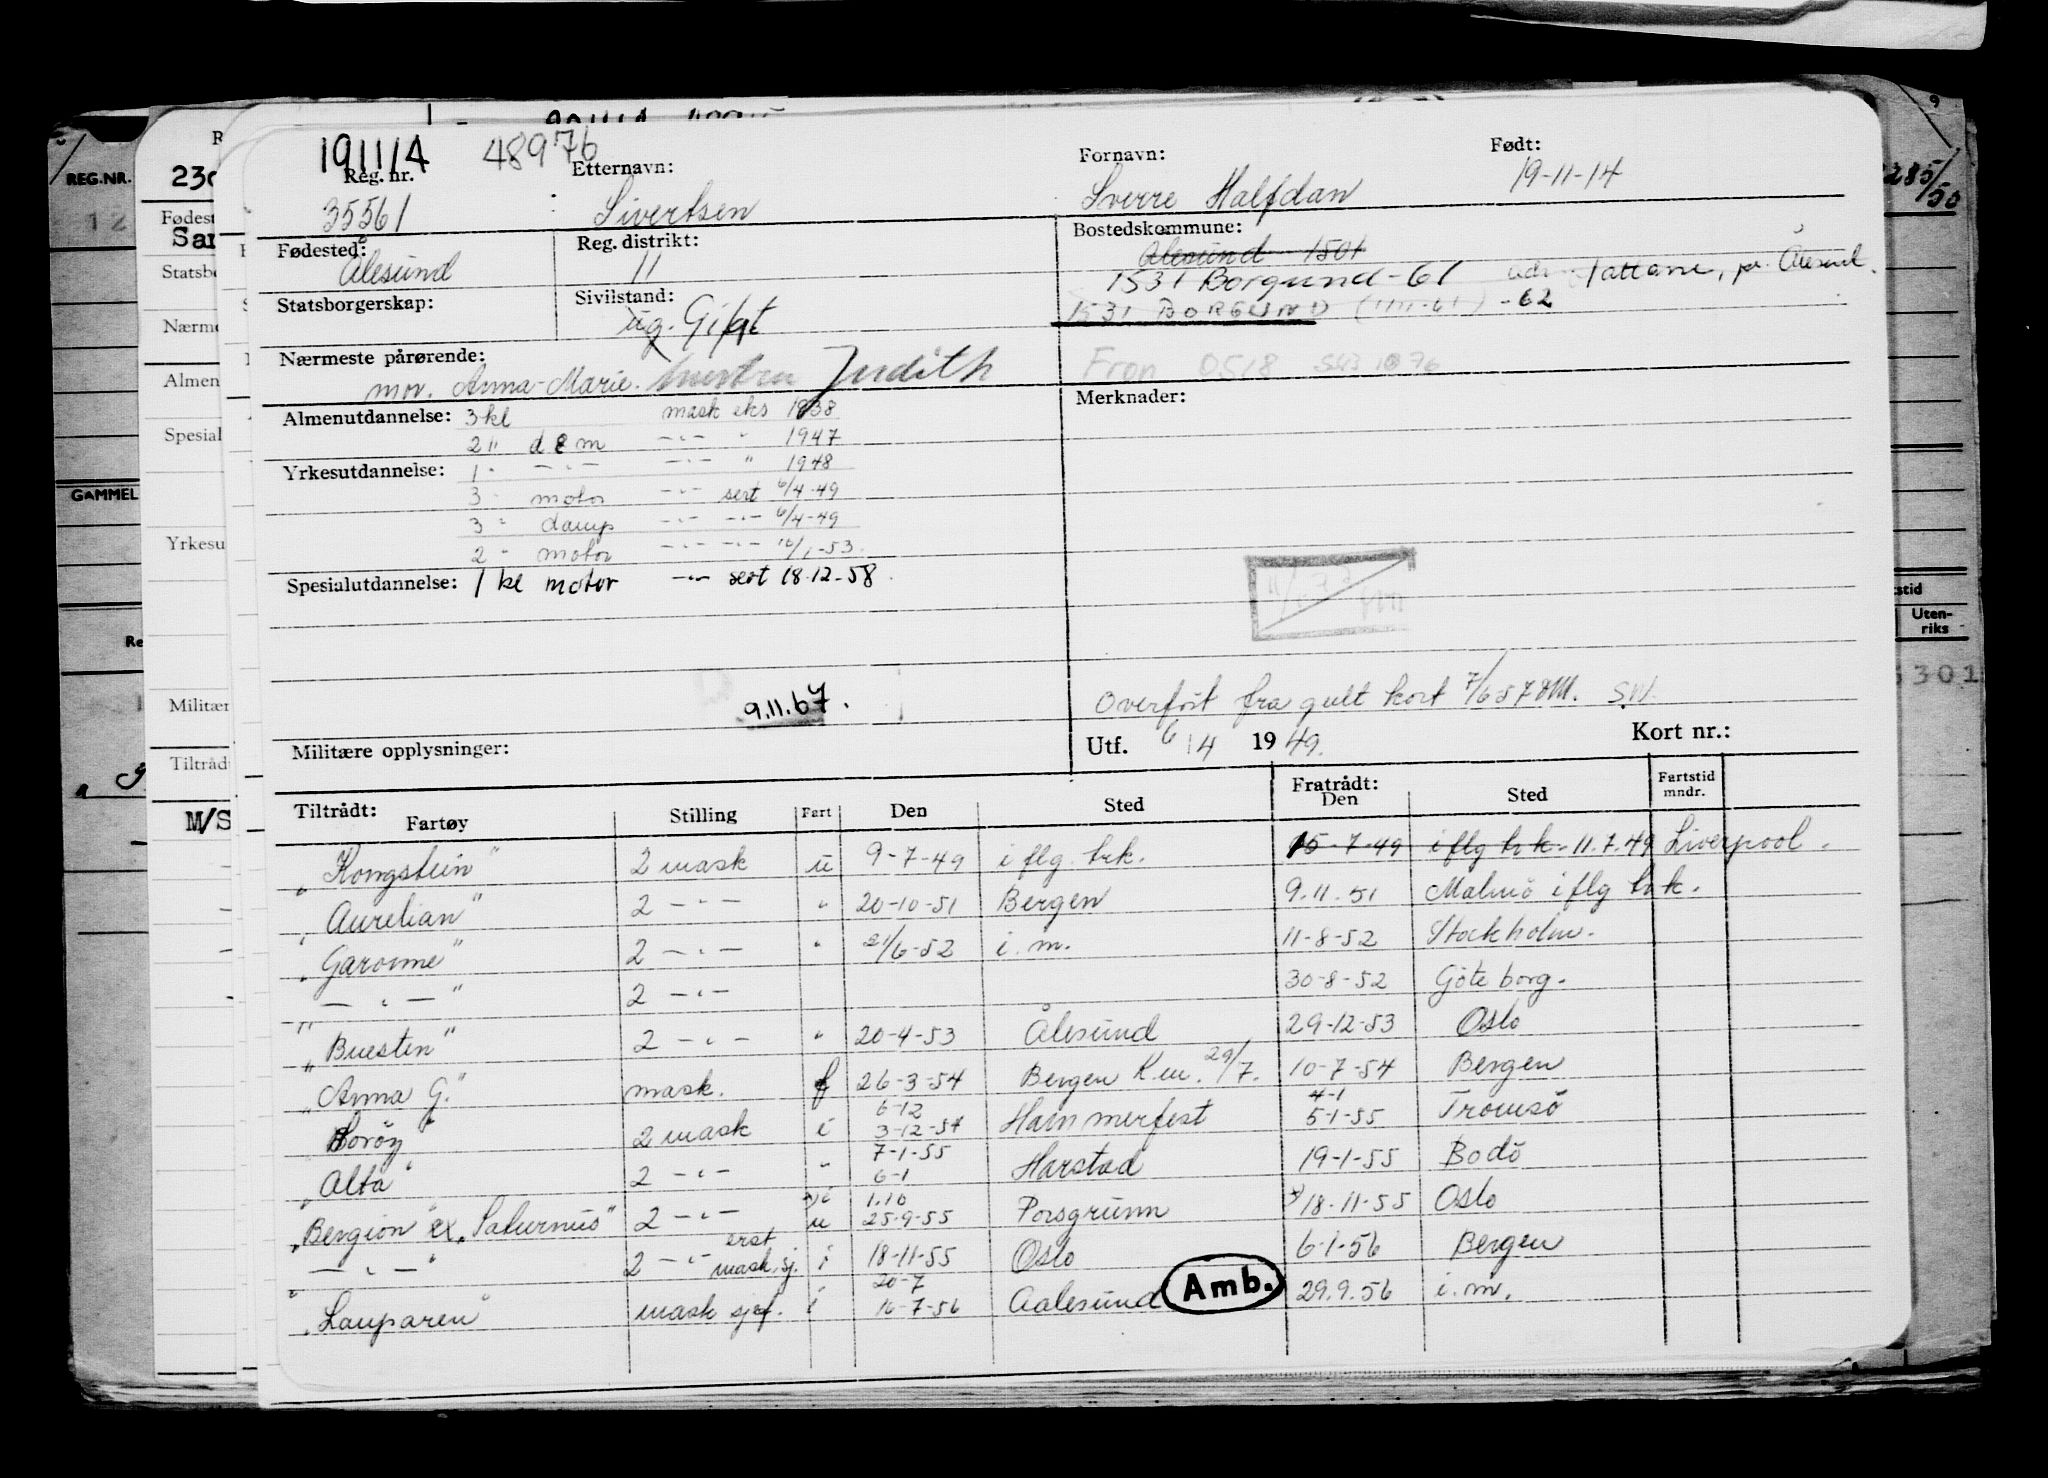 191114 48976
Reg. nr. Etternavn: Fornavn: Født:
35561 Sivertsen Sverre Halfdan 19-11-14
Fødested: Reg. distrikt: Bostedskommune:
Ålesund 11 Ålesund 1501
1531 Borgund-61 adr. , pr. Ålesund.
Statsborgerskap: Sivilstand:
ug. Gift 1531 BORGUND (1111-61) -62
Nærmeste pårørende:
mor. Anna-Marie. hustru Judith Fron 0518
Almenutdannelse: 3 kl mask eks 1938 Merknader:
2 " d & m -"- " 1947
Yrkesutdannelse: 1 " -"- -"- " 1948
3 " motor -"- sert 6/4-49
3 " damp -"- -"- 6/4-49
2 " motor -"- -"- 16/1-53.
Spesialutdannelse: 1 kl motor -"- sert 18.12-58.
9.11.67.
Overført fra gult kort 7/6 57
Militære opplysninger: Utf. 6/4 1949. Kort nr.:
Tiltrådt: Fratrådt: Fartstid mndr.
Fartøy Stilling Fart Den Sted Den Sted
"Kongstein" 2 mask u 9-7-49 i flg. trk. 15-7-49 i flg trk. 11.7.49 Liverpool.
"Aurelian" 2 -"- " 20-10-51 Bergen 9.11.51 Malmö i flg trk.
"Garonne" 2 -"- " 21/6-52 i. m. 11-8-52 Stockholm.
-"-" 2 -"- 30-8-52 Göteborg.
"Buesten" 2 -"- " 20-4-53 Ålesund 29-12-53 Oslo
"Anna G." mask. f 26-3-54 Bergen 29/7. 10-7-54 Bergen
"Soröy" 2 mask i 6-12 3-12-54 Hammerfest 4-1 5-1-55 Tromsö
"Alta" 2 -"- " 7-1-55 6-1 Harstad 19-1-55 Bodö
"Bergion" ex "Saturnus" 2 -"- u 1.10 25-9-55 Porsgrunn 18-11-55 Oslo
-"-" 2 -"- erst mask.sj. i 18-11-55 Oslo 6-1-56 Bergen
"Lauparen" mask sjef. i 20-7 16-7-56 Aalesund Amb. 29.9.56 i. m.
REG.NR.
GAMMEL
Fødest
Statsbo
Nærme
Almen
Spesial
Yrkesu
Militær
Tiltråd
M/S
285/50
Uten-
riks
301